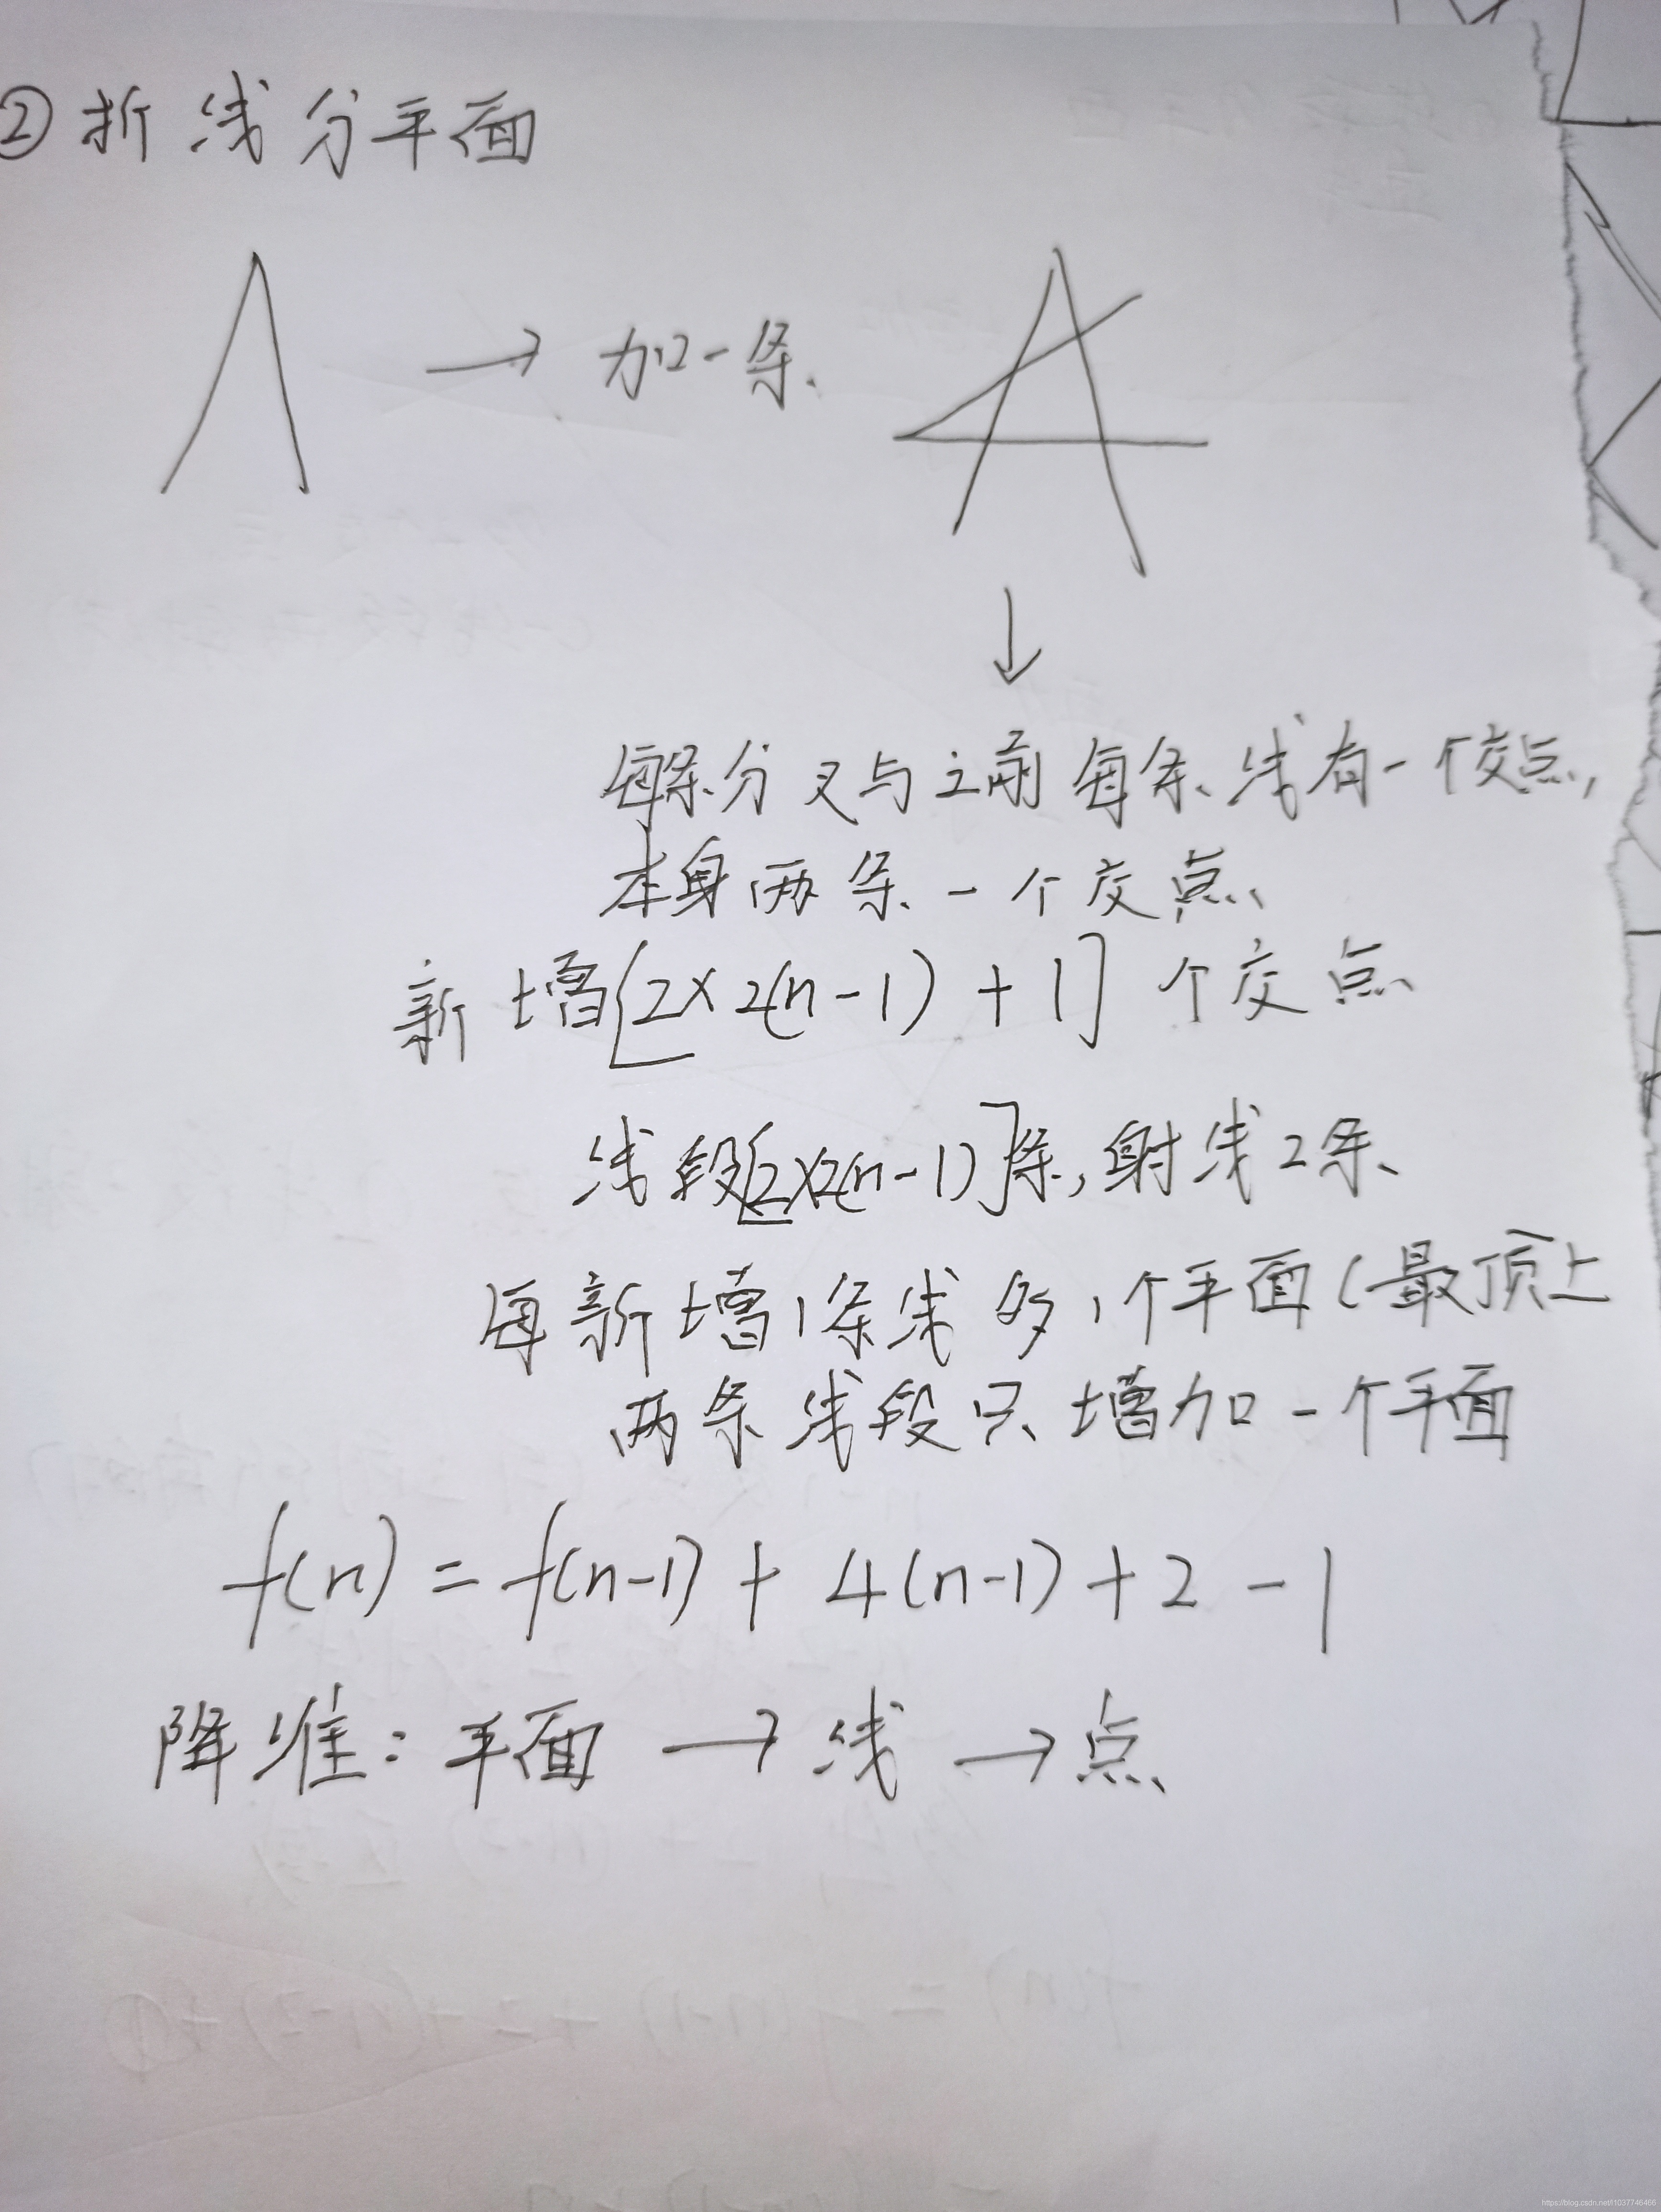 ② 折线分平面
→ 加一条
每条分叉与之前每条线有一个交点,
本身两条一个交点
新增[2×2(n-1)+1]个交点
线段[2×2(n-1)]条,射线2条
每新增1条线多1个平面(最顶上
两条线段只增加一个平面
f(n) = f(n-1) + 4(n-1) + 2 - 1
降准: 平面 → 线 → 点